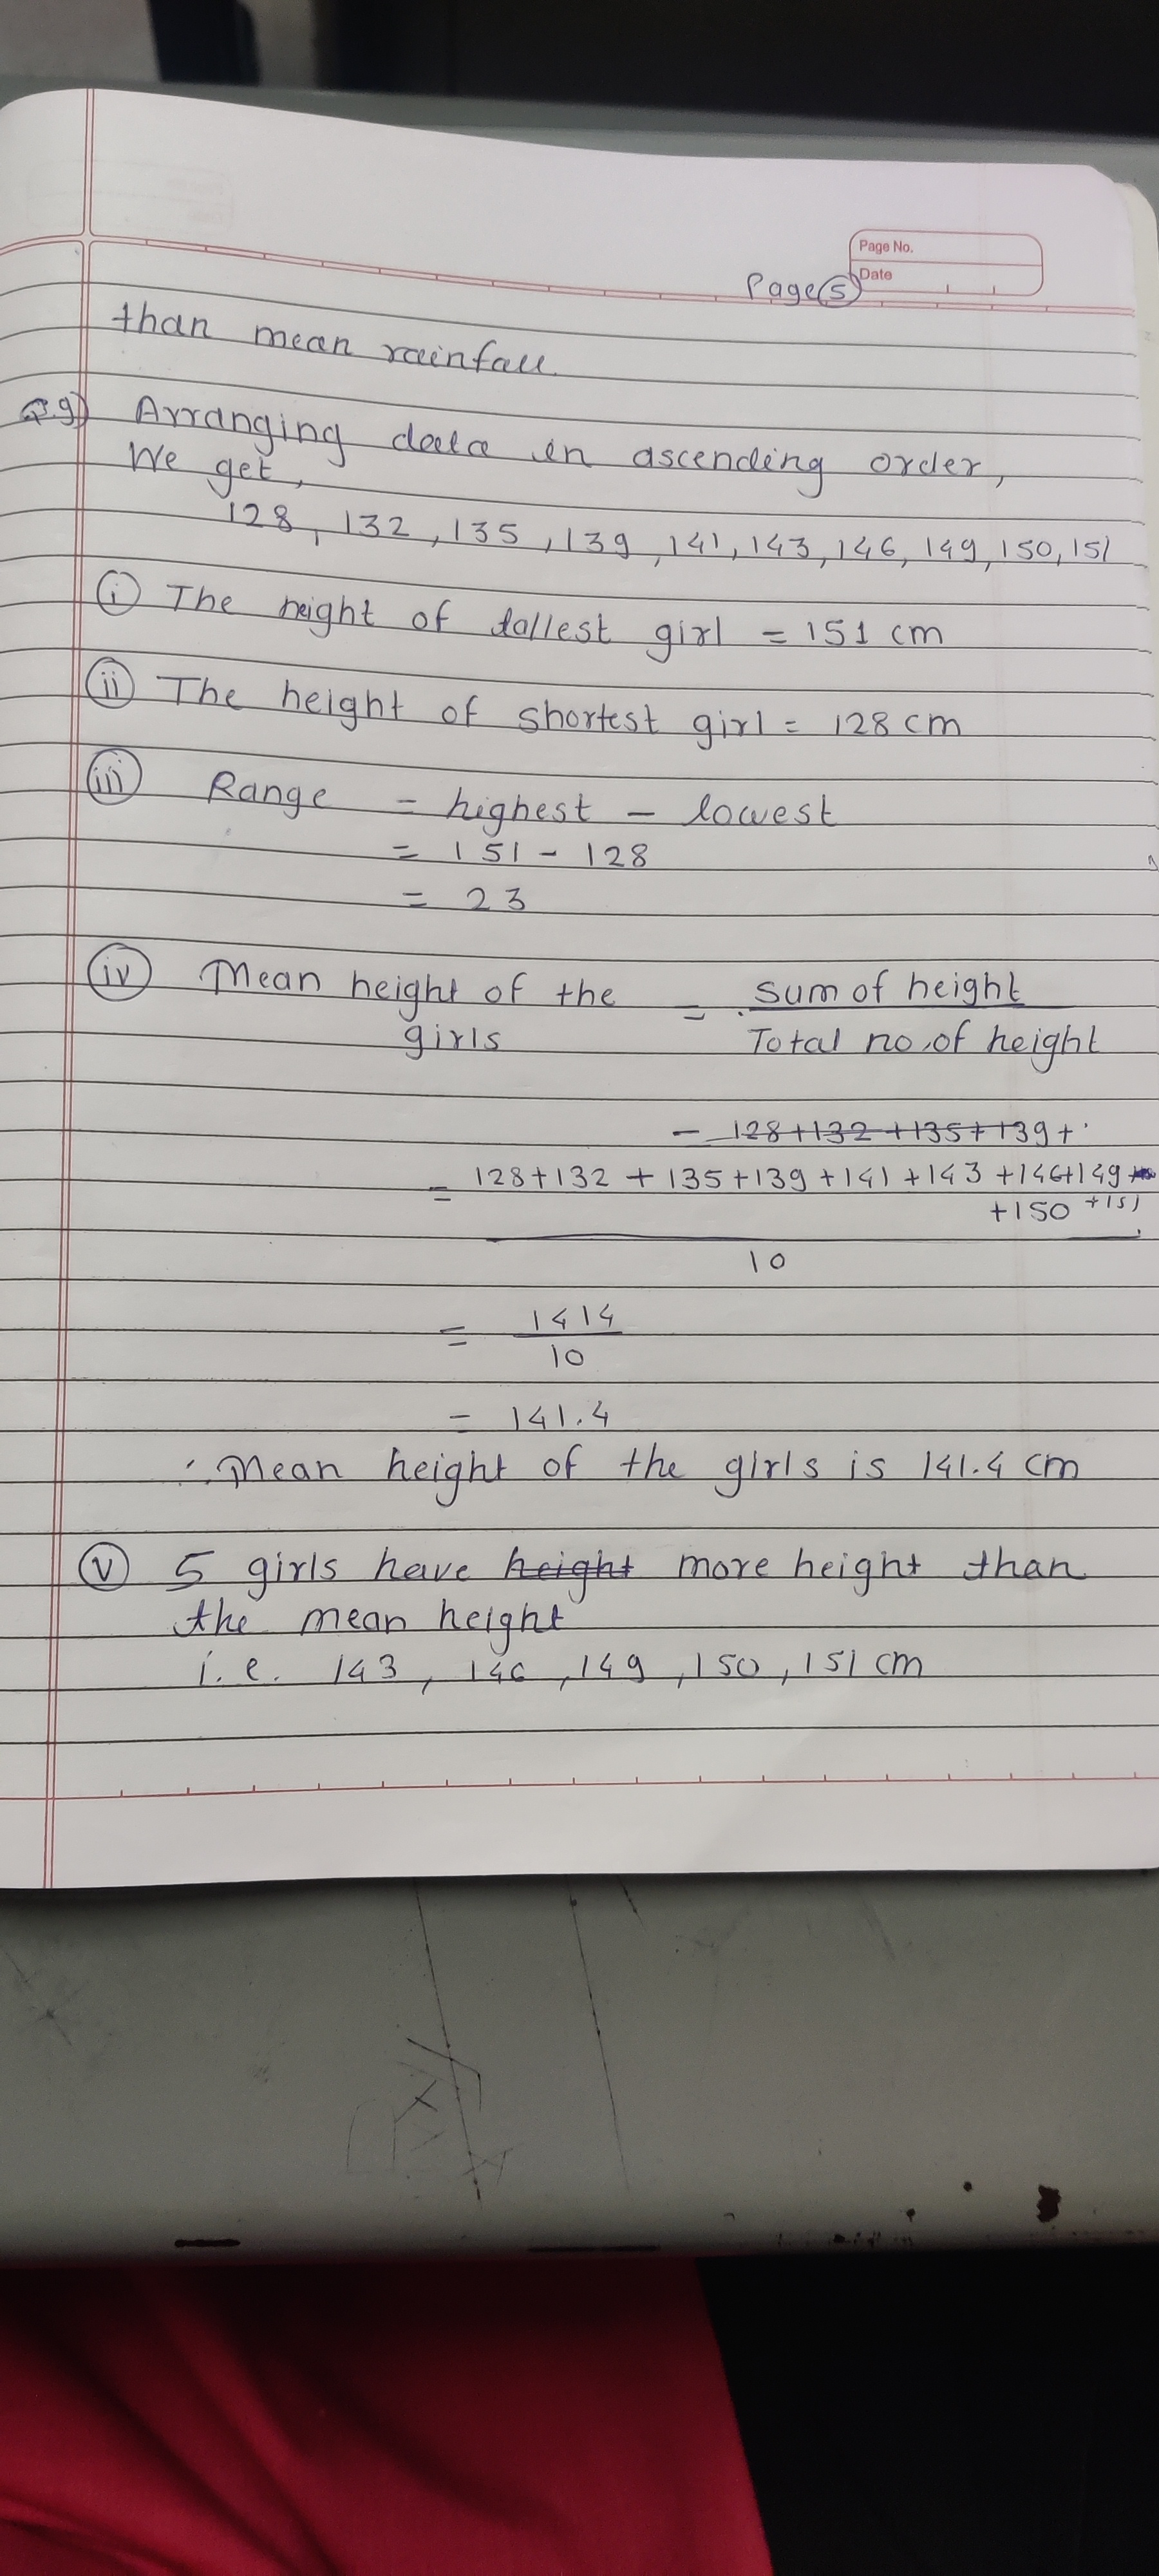 Page No.
Date
Page(5)
than mean rainfall
Q.9) Arranging data in ascending order,
We get,
128, 132, 135, 139, 141, 143, 146, 149, 150, 151
(i) The height of tallest girl = 151 cm
(ii) The height of shortest girl = 128 cm
(iii) Range = highest - lowest
= 151 - 128
= 23
(iv) Mean height of the girls = sum of height
Total no. of height
- 128+132+135+139+
= 128+132+135+139+141+143+146+149
+150+151
10
= 1414
10
= 141.4
∴ Mean height of the girls is 141.4 cm
(v) 5 girls have height more height than
the mean height
i.e. 143, 146, 149, 150, 151 cm